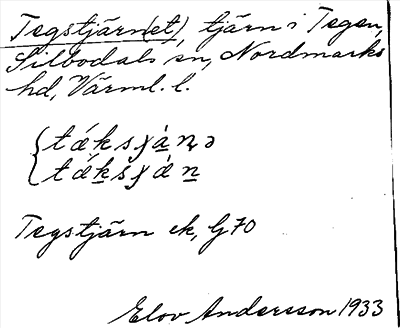 Tegstjärn(et), tjärn i Tegen,
Silbodals sn, Nordmarks
hd, Värml. l.
Tegstjärn ek, G70
Elov Andersson 1933